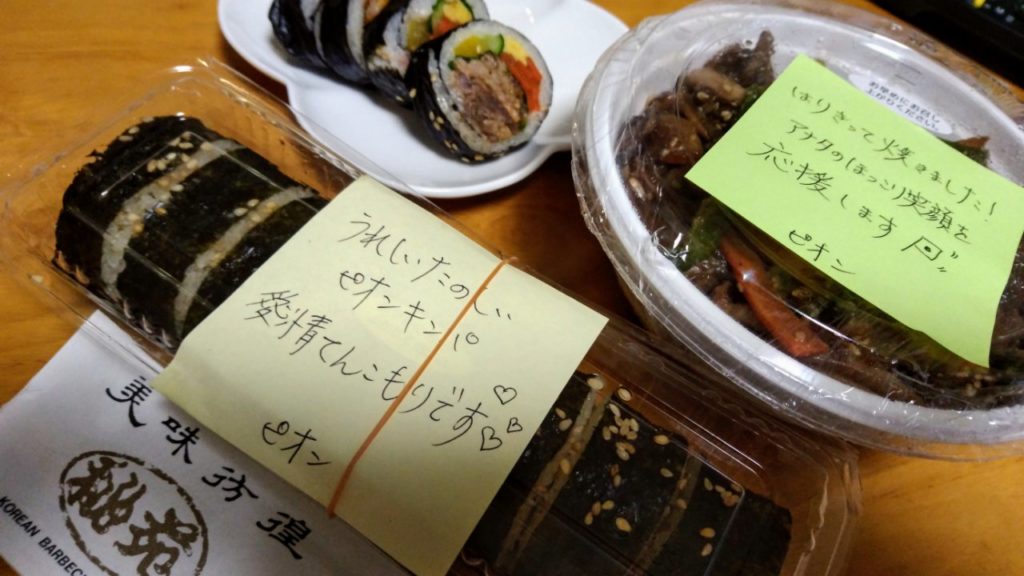 うれしいたのしい
ピオンキンパ
愛情てんこもりです♡♡♡
ピオン
はりきって焼きました!
アナタのほっこり笑顔を
応援します
ピオン
お早めにお召し
上がりください
美味彷徨
KOREAN BARBEC